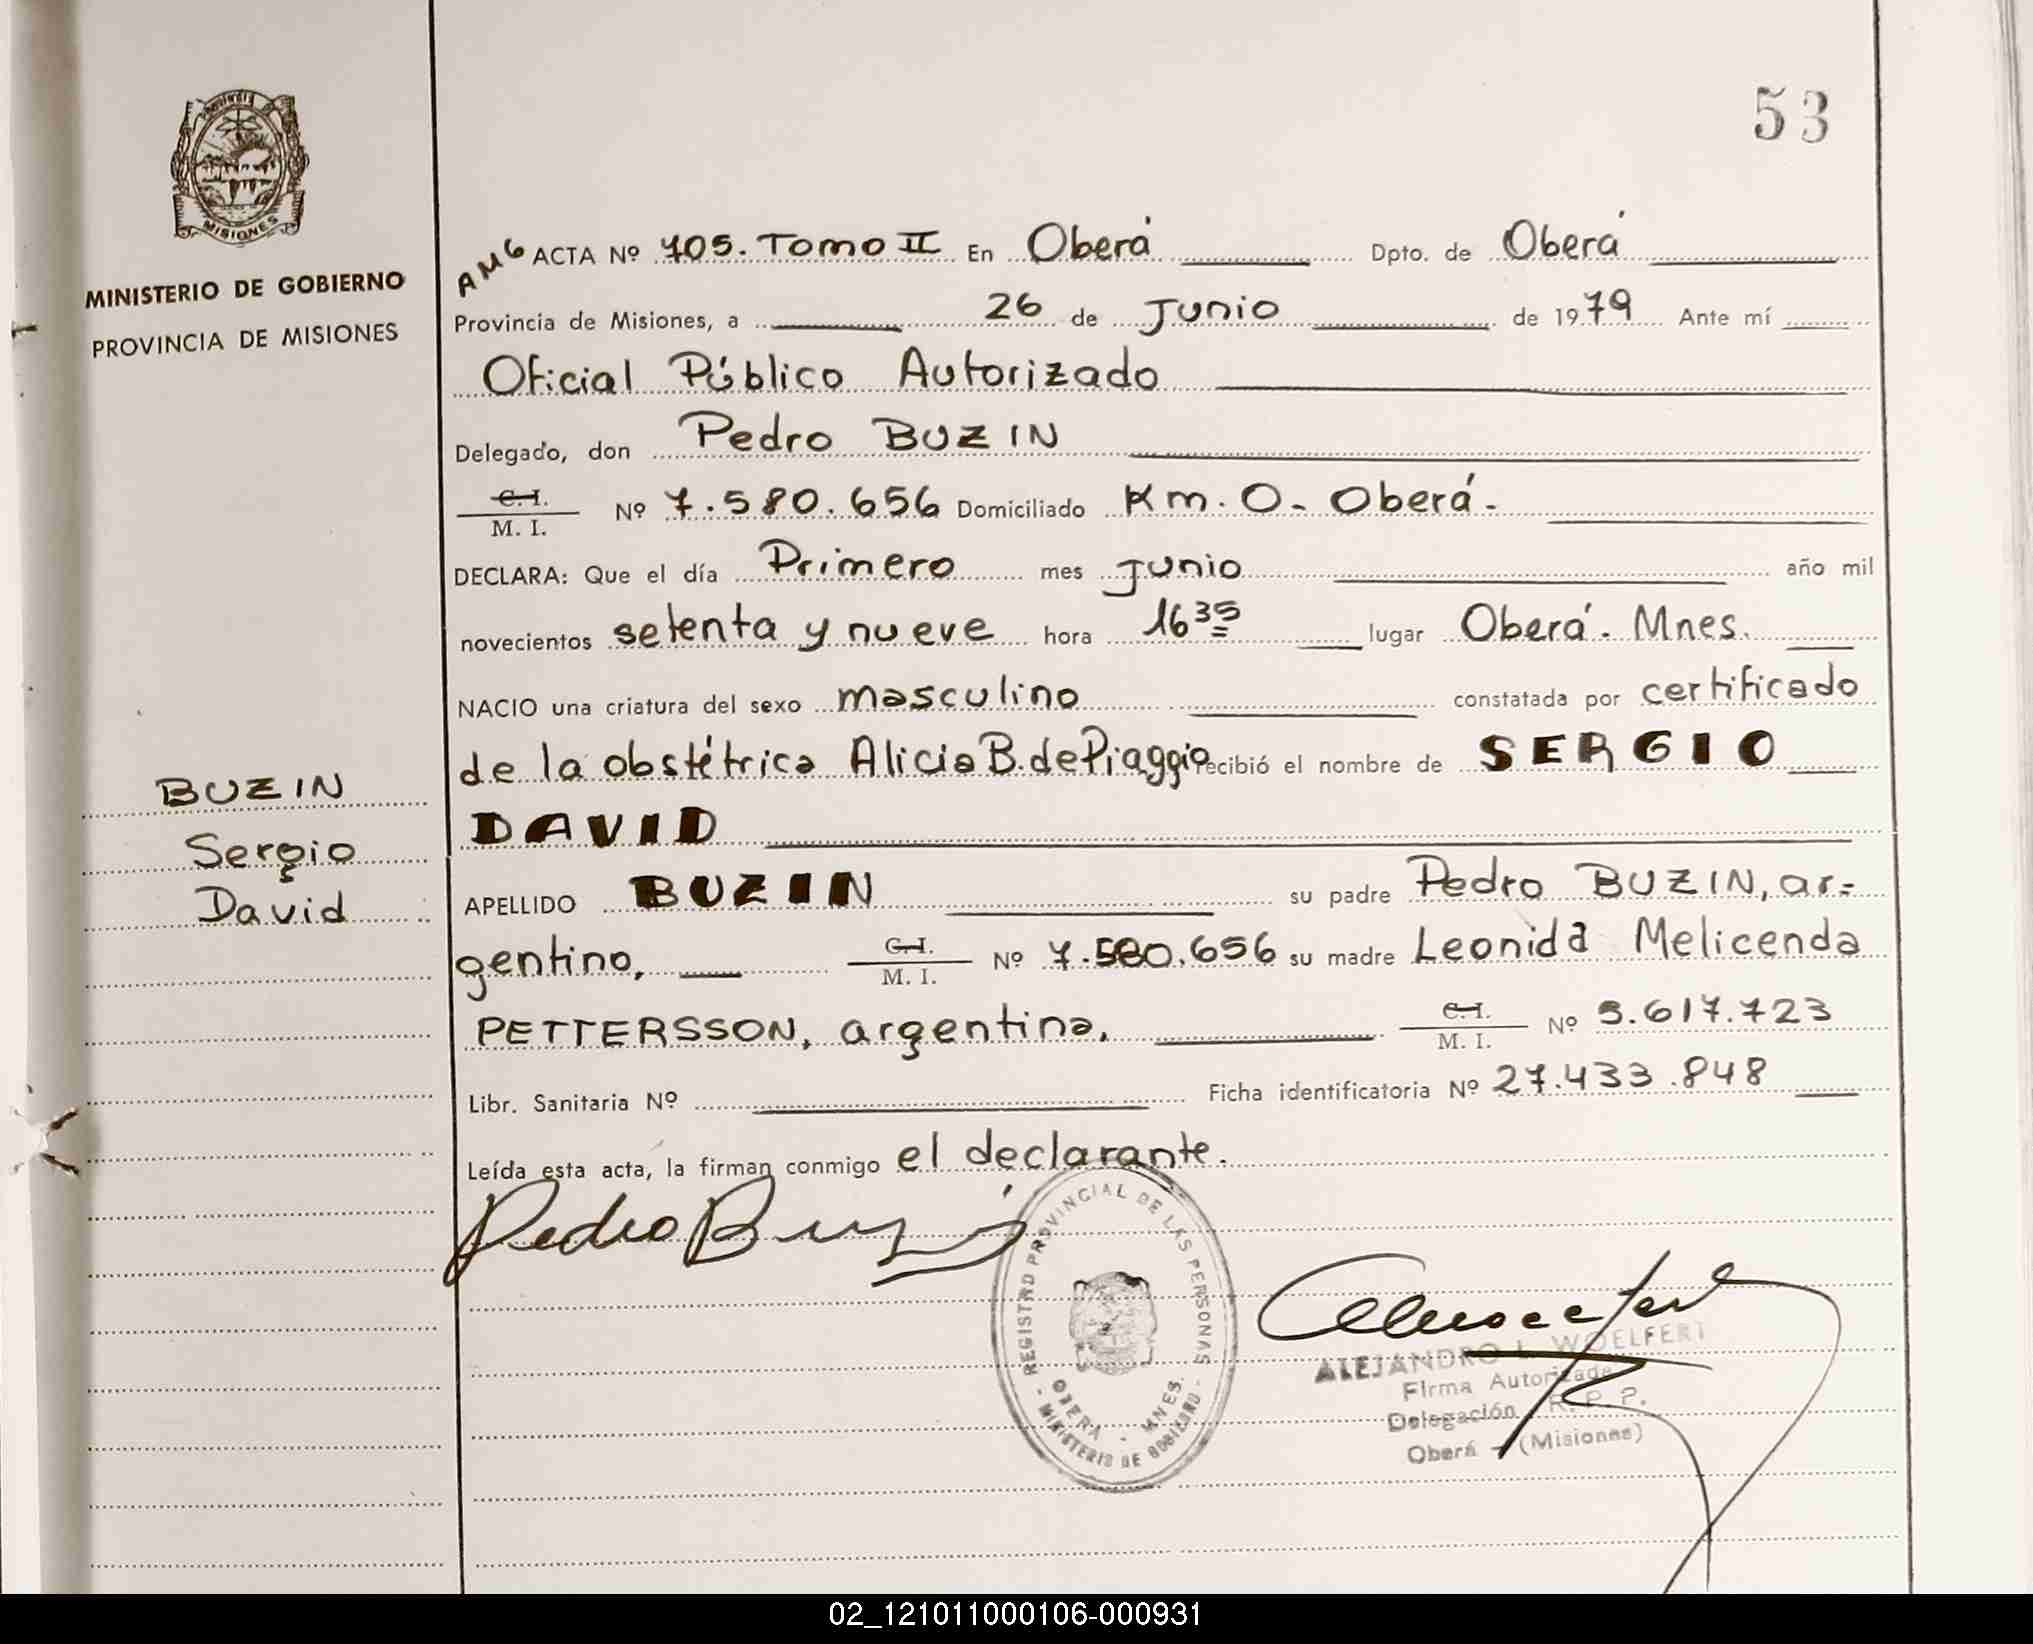 53
PROVINCIA
MISIONES
MINISTERIO DE GOBIERNO
PROVINCIA DE MISIONES
AMG ACTA Nº 705. Tomo II En Oberá Dpto. de Oberá
Provincia de Misiones, a 26 de Junio de 1979 Ante mí
Oficial Público Autorizado
Delegado, don Pedro BUZIN
C.I. / M. I. Nº 7.580.656 Domiciliado Km. 0 - Oberá.
DECLARA: Que el día Primero mes junio año mil
novecientos setenta y nueve hora 16 35 lugar Oberá. Mnes.
NACIO una criatura del sexo masculino constatada por certificado
de la obstétrica Alicia B. de Piaggio recibió el nombre de SERGIO
DAVID
APELLIDO BUZIN su padre Pedro BUZIN, ar-
gentino, C.I. / M. I. Nº 7.580.656 su madre Leonida Melicenda
PETTERSSON, argentina, C.I. / M. I. Nº 5.617.723
Libr. Sanitaria Nº Ficha identificatoria Nº 27.433.848
Leída esta acta, la firman conmigo el declarante.
BUZIN
Sergio
David
Pedro Buzin
REGISTRO PROVINCIAL DE LAS PERSONAS
OBERA - MNES.
- MINISTERIO DE GOBIERNO -
ALEJANDRO L. WOELFERT
Firma Autorizada
Delegación R. P. P.
Oberá - (Misiones)
02_121011000106-000931